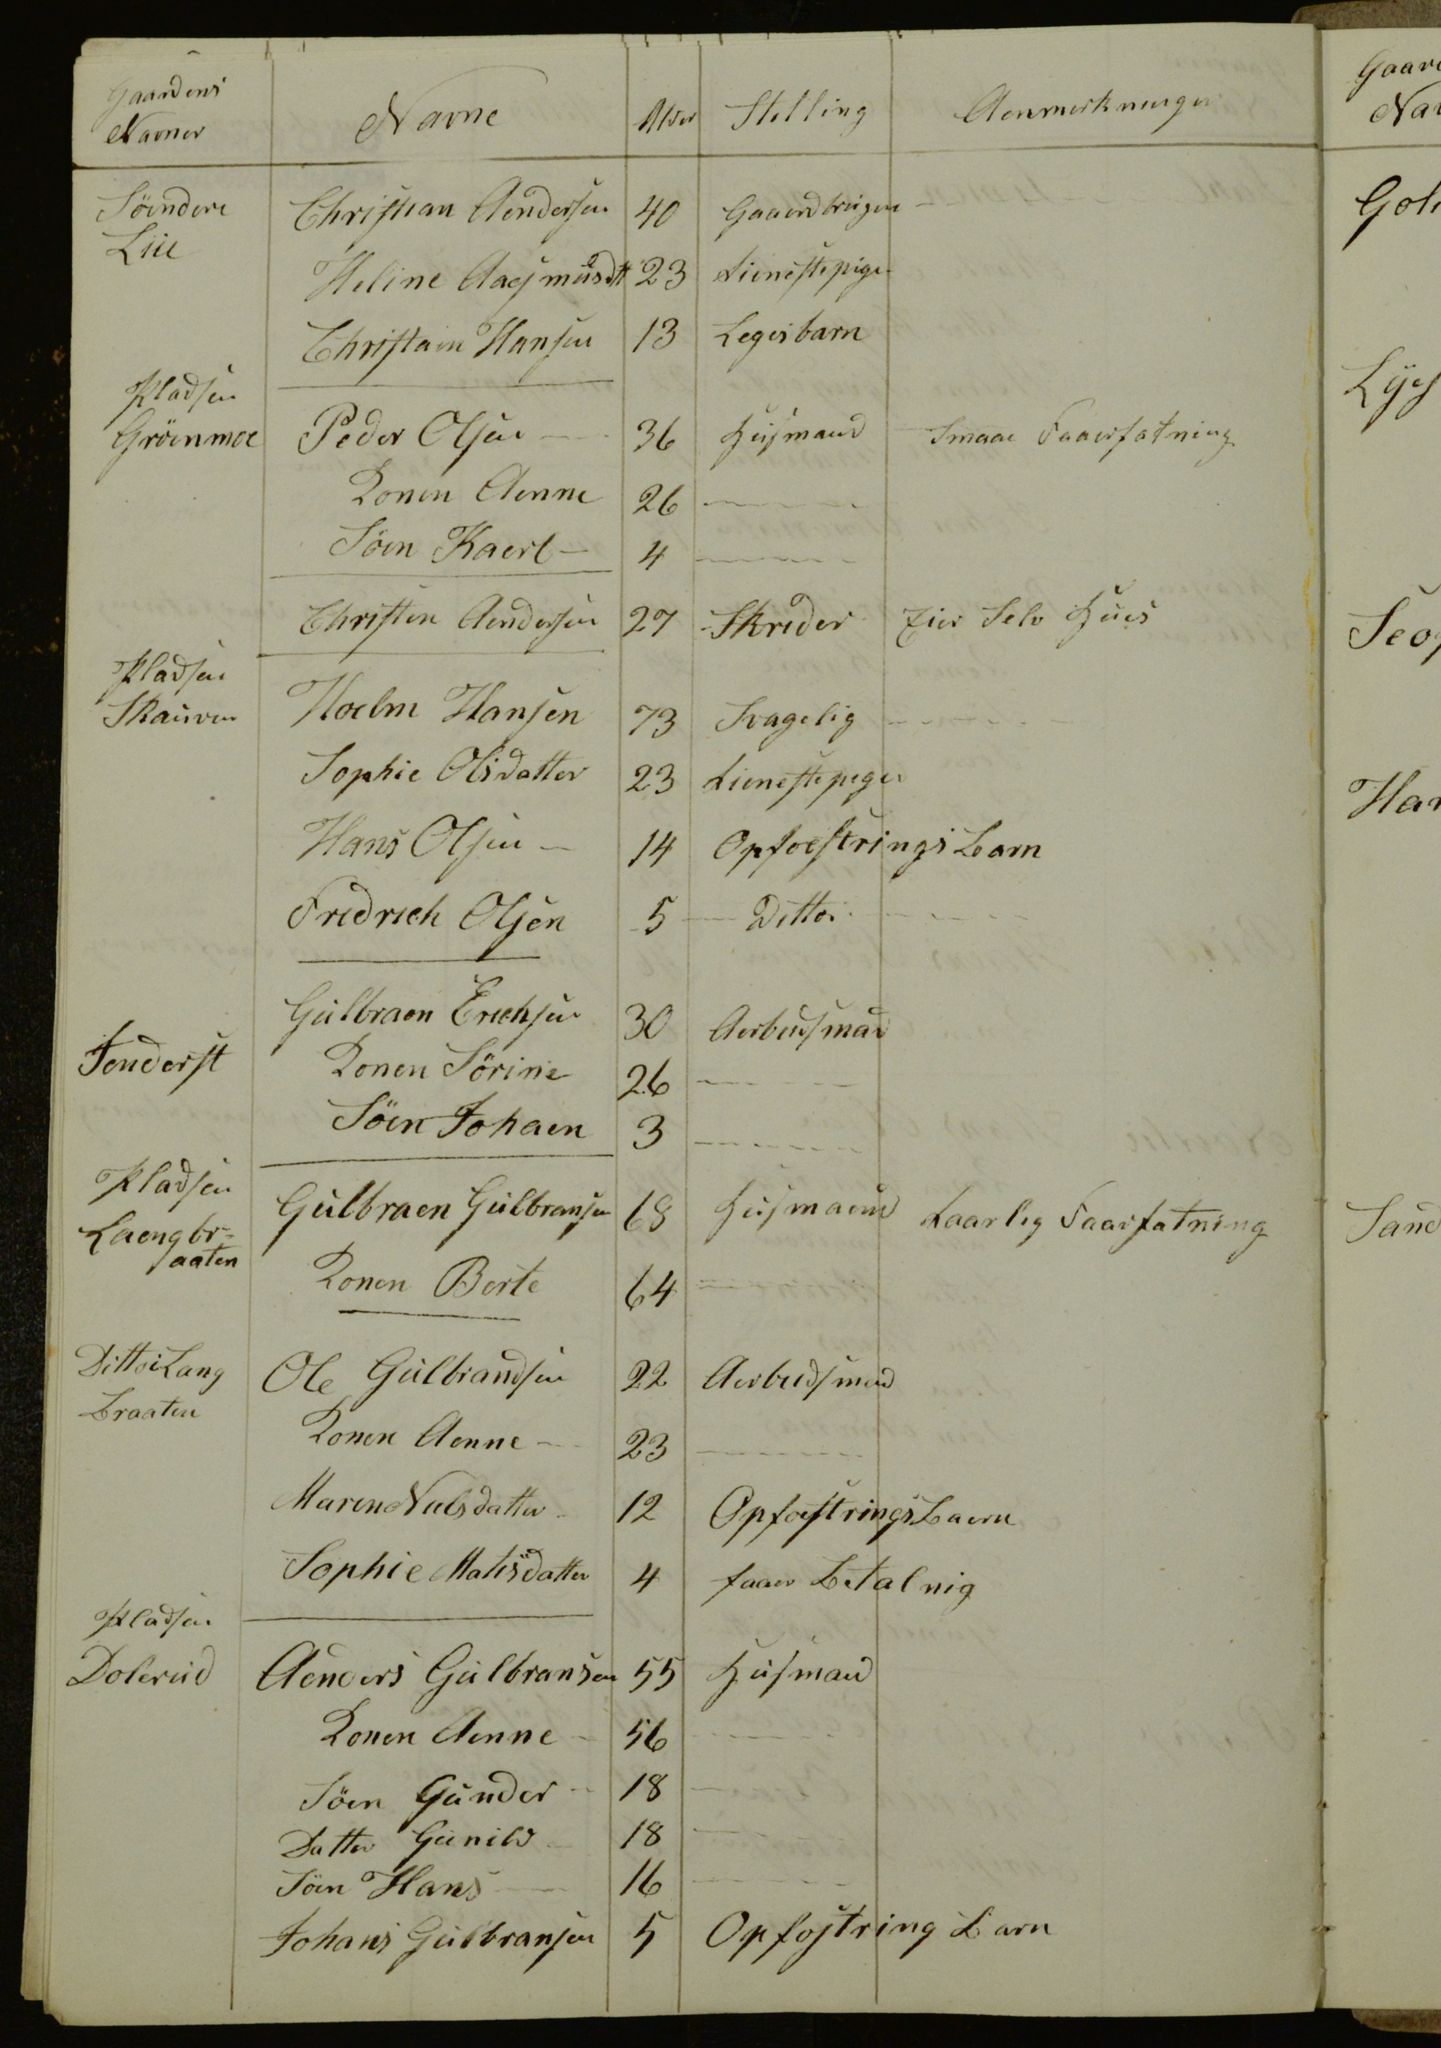 Gaardens Navner | Navne | Alder | Stelling | Aenmerkninger
Söendere Christian Aendersen 40 Gaardbruger
Liie
Heline Aasmusdtt 23 Tienestepige
Christaen Hansen 13 Legesbarn
Pladsen
Gröenmoe Peder Olsen 36 Husmand Smaae Faaerfatning
Konen Aenne 26
Söen Kaerl 4
Christen Aendersen 27 Skreder Eier Selv Hues
Pladsen
Skauven Hoelm Hansen 73 Svagelig
Sophie Olsdatter 23 Tienestepige
Hans Olsen 14 Opfoestrings Barn
Fredrich Olsen 5 Ditto
Gulbraen Erichsen 30 Aerbeidsmand
Tenderst Konen Sörine 26
Söen Johaen 3
Pladsen
Laengbr= Gulbraen Gulbransen 68 Husmaend Daarlig Faarfatning
aaten
Konen Berte 64
Ditto Lang Ole Gulbrandsen 22 Aerbeidsmand
Braaten
Konen Aenne 23
Maren Nielsdatter 12 Opfoestrings Baern
Sophie Matisdatter 4 faaer Betalnig
Pladsen
Dolerud Aenders Gulbransen 55 Husmand
Konen Aenne 56
Söen Gunder 18
Datter Gunild 18
Söen Hans 16
Johans Gulbransen 5 Opfostring Barn